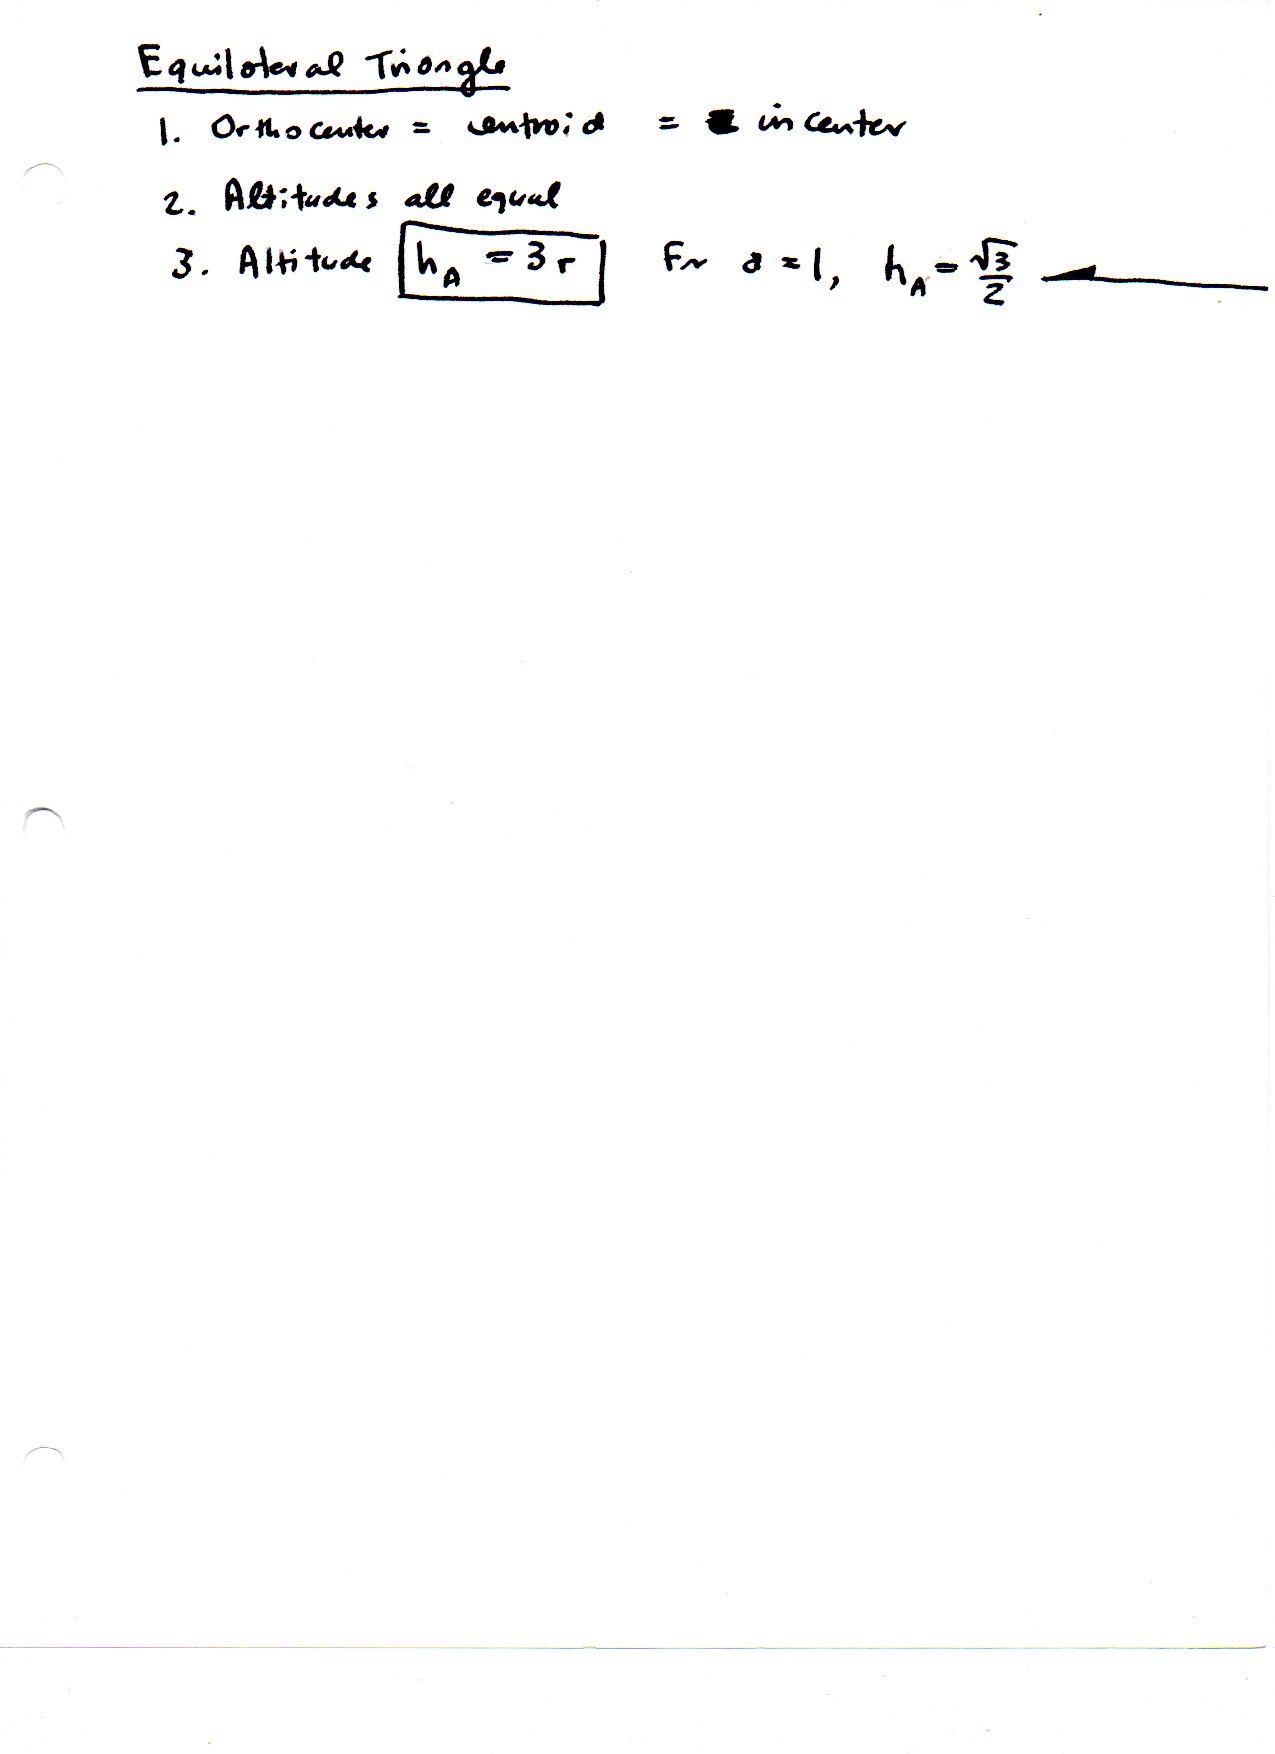 Equilateral Triangle
1. Orthocenter = centroid = incenter
2. Altitudes all equal
3. Altitude h_A = 3r For a = 1, h_A = √3/2